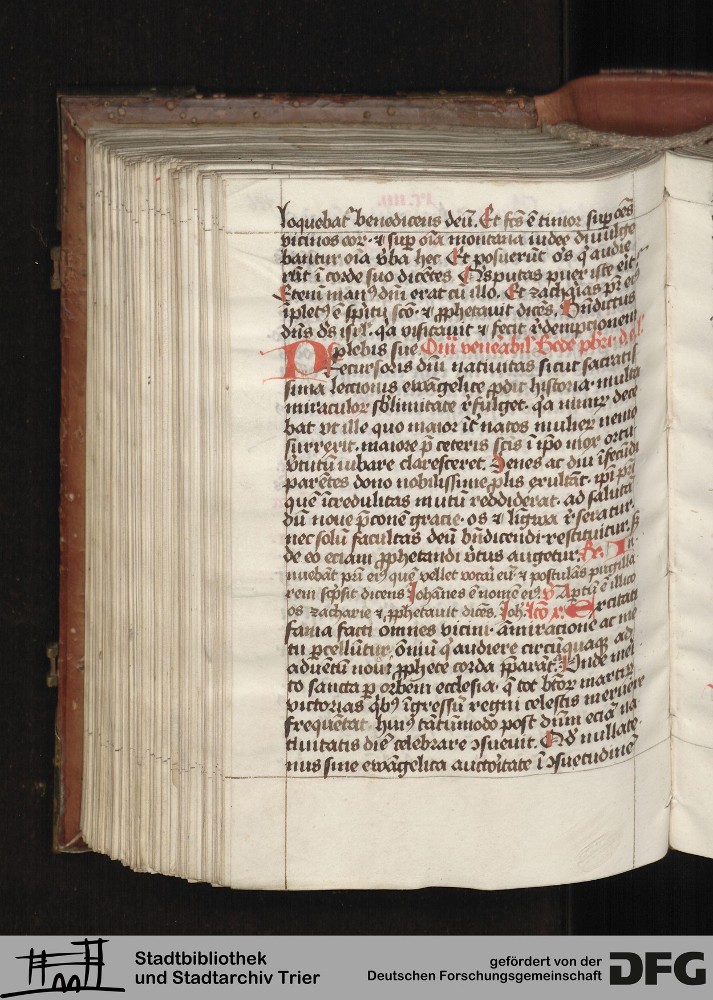 loquebat᷑ benedicens deū. Et fc̄s ē timor sup oēs
vicinos eoꝝ · ⁊ sup oīa montana iudee diuulga
bantur oīa v̄ba hec Et posuerūt oēs q̇ audie
rūt ī corde suo dicētes Qͥs putas puer iste erit
Eteni manꝰ dn̄i erat cū illo. Et zachaias pr̄ eiꝰ
īpletꝰ ē spūtu sc̄o · ⁊ ꝓphetauit dicēs. Bn̄dictus
dn̄s ds̄ isrl̄ · qͣ visitauit ⁊ fecit rᷓdemptionem
plebis sue Om̄ venerabil̓ Bede pbr̄i
Precursoris dn̄i natiuitas sicut sacratis
sima lectionis ewāgelice ꝓdit historia · multa
miraculoꝝ sb̓limitate rͤfulget. qͣ nimiꝝ dece
bat vt ille quo maior īt̓ natos mulieꝝ nemo
surrexit. maiore p̄ ceteris sc̄is ī ip̄o mox ortu
v̓tutū iubare claresceret. Senes ac diu īfecūdi
parētes dono nobilissime ꝓlis exultāt. ip̄i pr̄i
quē īcredulitas mutū reddiderat · ad salutā
dū noue p̄conē gracie · os ⁊ līgwa rͤseratur.
nec solū facultas deū bn̄dicendi restituitur. sꝫ
de eo eciam ꝓphetandi v̓tus augetur. R̄. In
nuebāt pr̄i eiꝰ quē vellet vocai eū ⁊ postulās pugilla
rem scp̓sit dicens Johānes ē nomē eiꝰ. v̓ Aptū ē illico
os zacharie ⁊ ꝓphetauit dicēs. Joh. lc̄o x. Excitati
fama facti omnes vicini · āmiracione ac me
tu ꝑcellūtur. ōniū q̇ audiere circūquaqꝫ ad
aduētū noui ꝓphete corda p̄parāt᷑. Unde mei
to sancta ꝑ orbem ecclesia · q̄ tot bt̄oꝝ martiꝝ
victorias qͥbꝰ īgressū regni celestis meruere
frequētat · huiꝰ tātūmodo post dn̄m eciā na
tiuitatis diē celebrare ꝯsueuit. Qd̓ nullate
nus sine ewāgelica auctoītate ī ꝯsuetudinē
Stadtbibliothek
und Stadtarchiv Trier
gefördert von der
Deutschen Forschungsgemeinschaft
DFG